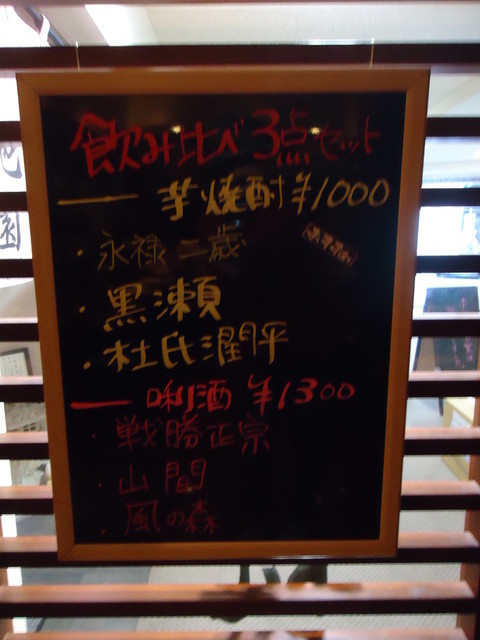 飲み比べ3点セット
芋焼酎 ¥1000
・永禄二歳
・黒瀬
・杜氏潤平
唎酒 ¥1300
・戦勝正宗
・山間
・風の森